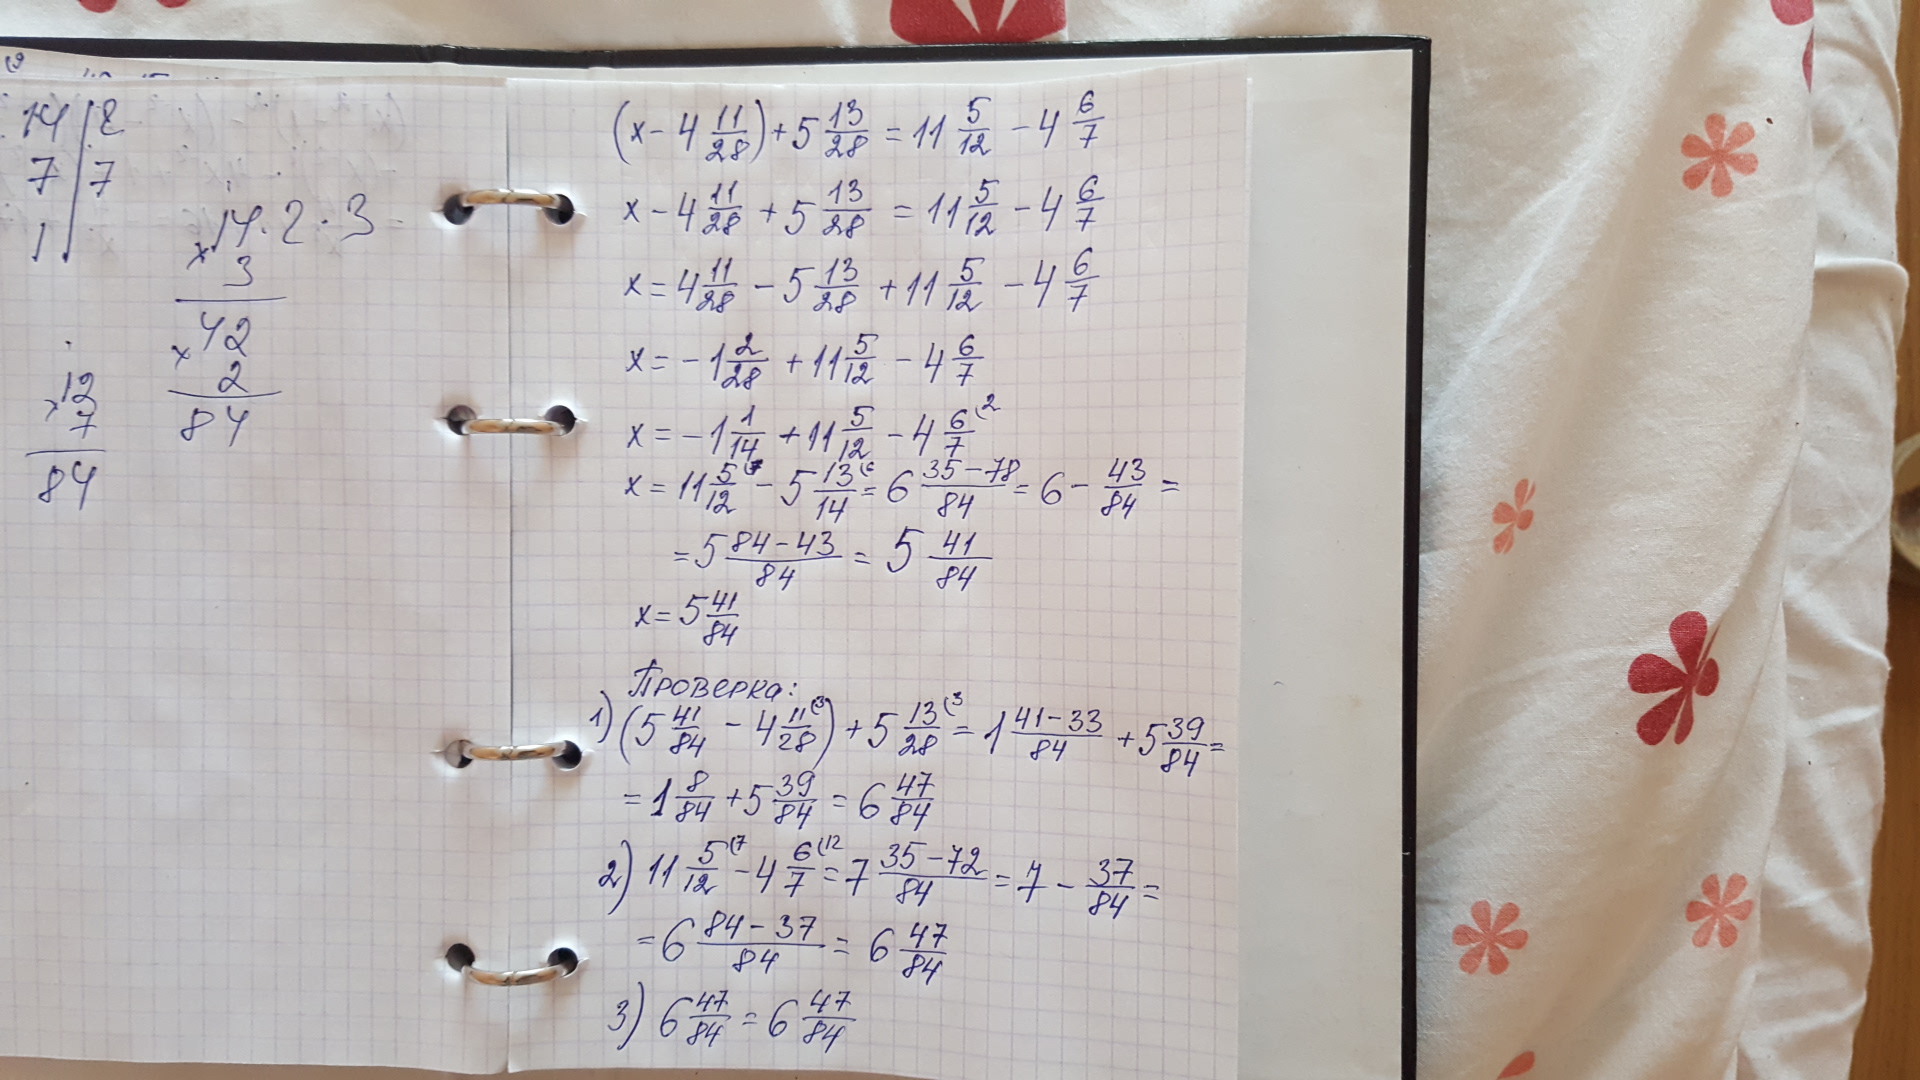 14 | 2
7 | 7
1
14 · 2 · 3 =
× 3
42
× 2
84
12
× 7
84
(x - 4 11/28) + 5 13/28 = 11 5/12 - 4 6/7
x - 4 11/28 + 5 13/28 = 11 5/12 - 4 6/7
x = 4 11/28 - 5 13/28 + 11 5/12 - 4 6/7
x = -1 2/28 + 11 5/12 - 4 6/7
x = -1 1/14 + 11 5/12 - 4 6/7 (2
x = 11 5/12 (7 - 5 13/14 (6 = 6 35-78/84 = 6 - 43/84 =
= 5 84-43/84 = 5 41/84
x = 5 41/84
Проверка:
1) (5 41/84 - 4 11/28 (3) + 5 13/28 (3 = 1 41-33/84 + 5 39/84 =
= 1 8/84 + 5 39/84 = 6 47/84
2) 11 5/12 (7 - 4 6/7 (12 = 7 35-72/84 = 7 - 37/84 =
= 6 84-37/84 = 6 47/84
3) 6 47/84 = 6 47/84